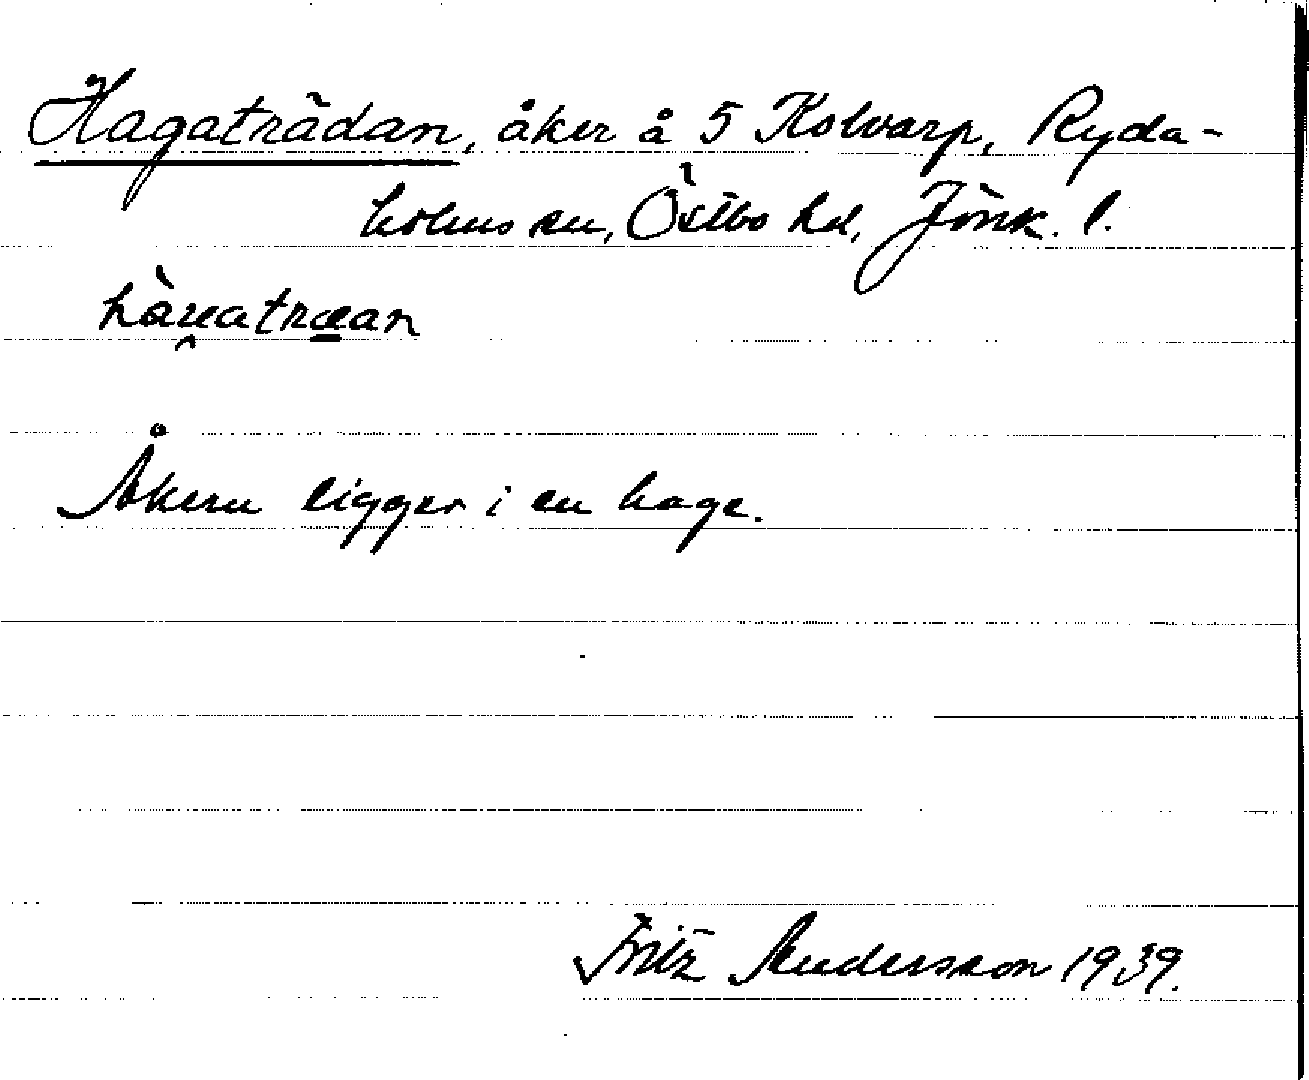 Hagaträdan, åker å 5 Kolvarp, Ryda-
holms sn, Östbo hd, Jönk. l.
Åkern ligger i en hage.
Fritz Andersson 1939.